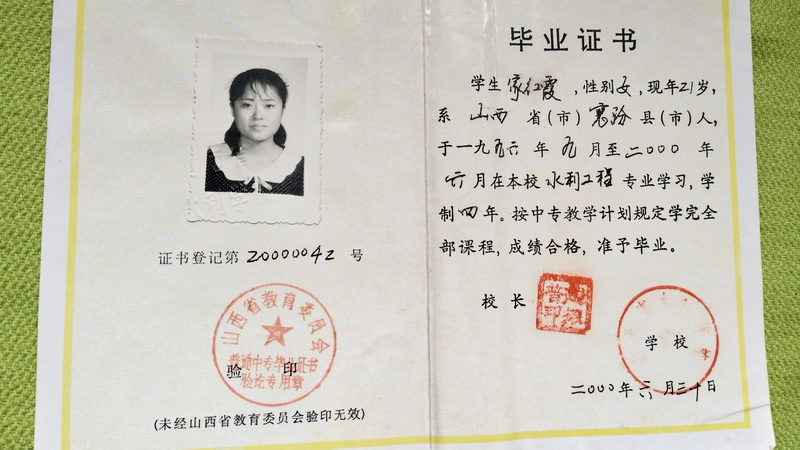 证书登记第 20000042 号
山西省教育委员会
普通中专毕业证书
验讫专用章
验 印
(未经山西省教育委员会验印无效)
毕业证书
学生 家红霞 ,性别女,现年21岁,
系 山西 省(市)襄汾县(市)人,
于一九九六年 九 月至二000 年
六月在本校水利工程专业学习,学
制四年。按中专教学计划规定学完全
部课程,成绩合格,准予毕业。
校 长
学 校
二000年六月三十日